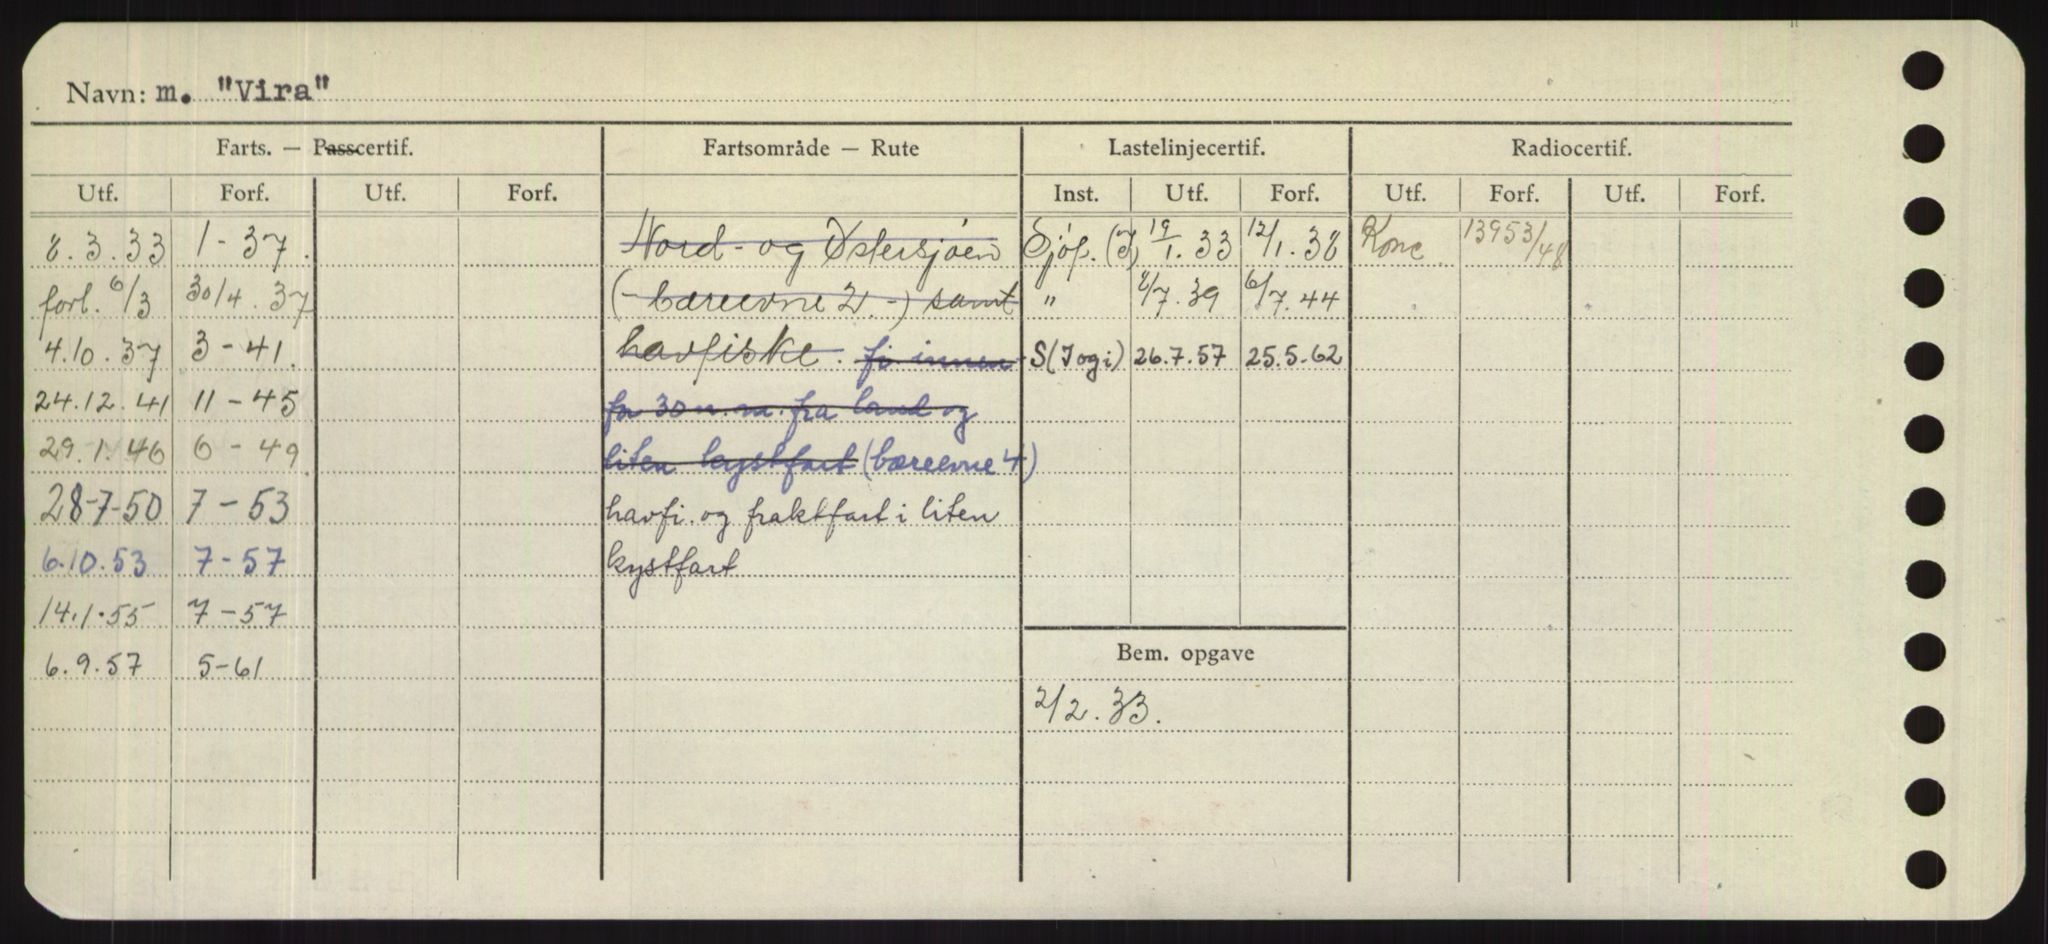 Navn: m. "Vira"
Farts. — Passcertif. Fartsområde — Rute Lastelinjecertif. Radiocertif.
Utf. Forf. Utf. Forf. Inst. Utf. Forf. Utf. Forf. Utf. Forf.
8.3.33 1-37. Nord- og Østersjøen Sjöf. (J) 19/1.33 12/1.38 Konc 13953/48
forl. 6/3 30/4.37 (- bæreevne 2 -) samt " 8/7.39 6/7.44
4.10.37 3-41. havfiske. fi innen S(J og i) 26.7.57 25.5-62
24.12.41 11-45 for 30 n.m. fra land og
29.1.46 6-49 liten kystfart (bæreevne 4)
28-7-50 7-53 havfi. og fraktfart i liten
6.10.53 7-57 kystfart
14.1.55 7-57
6.9.57 5-61
Bem. opgave
2/2.33.